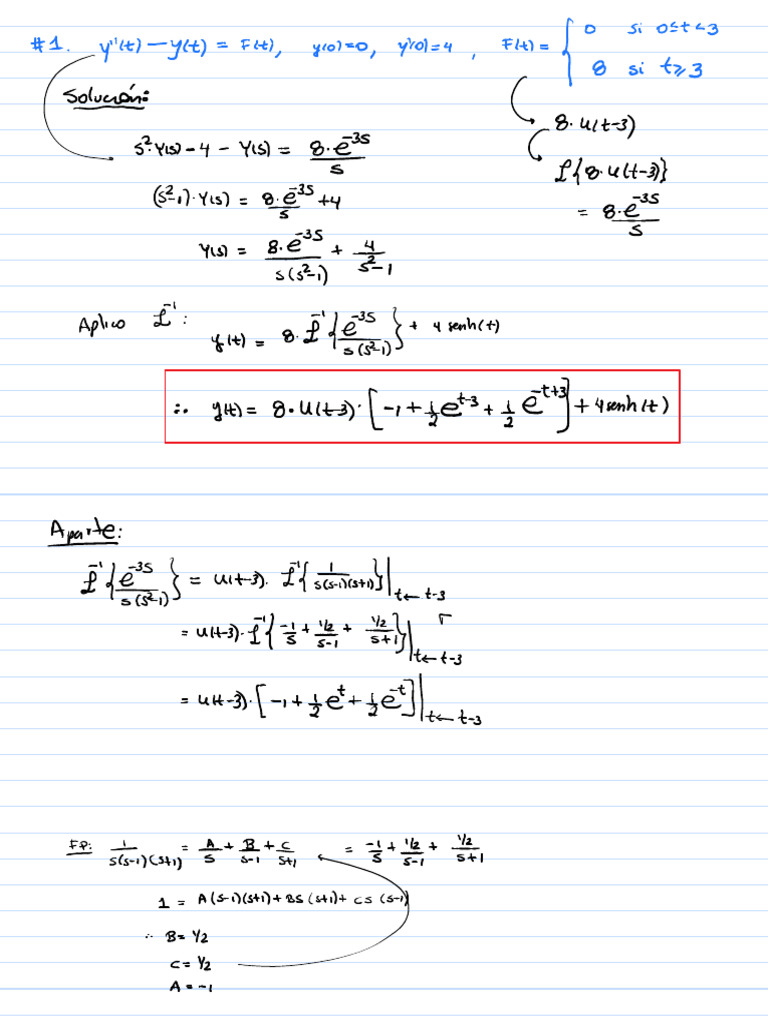 #1. y''(t) − y(t) = F(t), y(0)=0, y'(0)=4, F(t) = { 0 si 0≤t<3
8 si t≥3
Solución:
8·u(t−3)
s²·Y(s) − 4 − Y(s) = 8·e^{−3s}/s
ℒ{8·u(t−3)}
= 8·e^{−3s}/s
(s²−1)·Y(s) = 8·e^{−3s}/s + 4
Y(s) = 8·e^{−3s}/(s(s²−1)) + 4/(s²−1)
Aplico ℒ⁻¹:
y(t) = 8·ℒ⁻¹{e^{−3s}/(s(s²−1))} + 4 senh(t)
∴ y(t) = 8·u(t−3)·[−1 + 1/2 e^{t−3} + 1/2 e^{−t+3}] + 4senh(t)
Aparte:
ℒ⁻¹{e^{−3s}/(s(s²−1))} = u(t−3)·ℒ⁻¹{1/(s(s−1)(s+1))}|t←t−3
= u(t−3)·ℒ⁻¹{−1/s + 1/2/(s−1) + 1/2/(s+1)}|t←t−3
= u(t−3)·[−1 + 1/2 e^t + 1/2 e^{−t}]|t←t−3
FP: 1/(s(s−1)(s+1)) = A/s + B/(s−1) + C/(s+1) = −1/s + 1/2/(s−1) + 1/2/(s+1)
1 = A(s−1)(s+1) + Bs(s+1) + Cs(s−1)
∴ B = 1/2
C = 1/2
A = −1